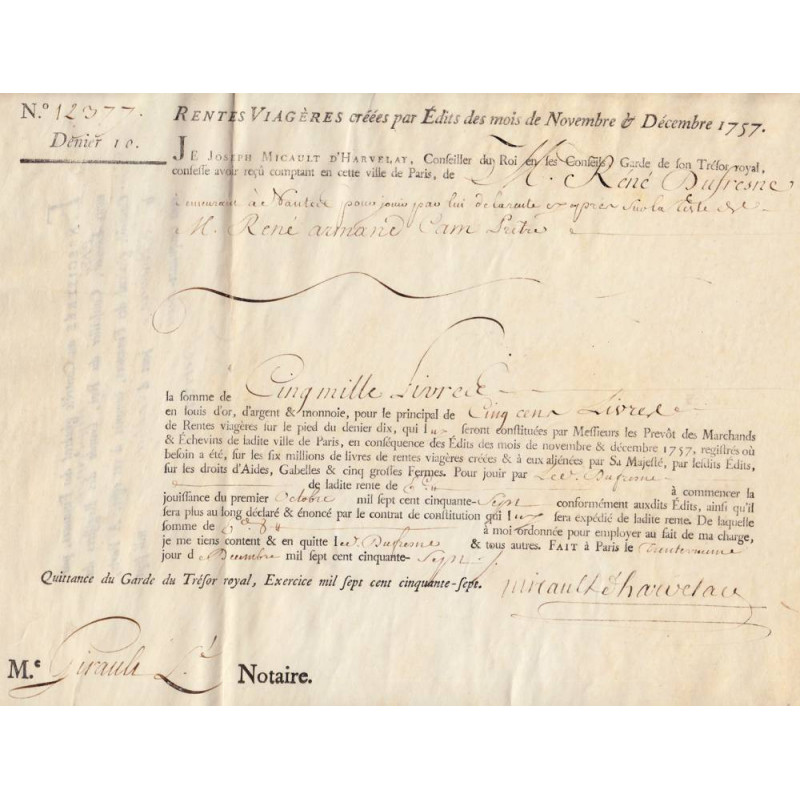 N.º 12377.
Denier 10.
RENTES VIAGÈRES créées par Édits des mois de Novembre & Décembre 1757.
JE JOSEPH MICAULT D'HARVELAY, Conseiller du Roi en ses Conseils, Garde de son Trésor royal,
confesse avoir reçu comptant en cette ville de Paris, de M. René Dufresne
demeurant à pour jouir par lui sur la teste de
M. René armand Cam
la somme de Cinq mille Livres
en louis d'or, d'argent & monnoie, pour le principal de Cinq cens Livres
de Rentes viagères sur le pied du denier dix, qui luy seront constituées par Messieurs les Prevôt des Marchands
& Échevins de ladite ville de Paris, en conséquence des Édits des mois de novembre & décembre 1757, registrés où
besoin a été, sur les six millions de livres de rentes viagères créées & à eux aliénées par Sa Majesté, par lesdits Édits,
sur les droits d'Aides, Gabelles & cinq grosses Fermes. Pour jouir par Led. Dufresne
de ladite rente de à commencer la
jouissance du premier Octobre mil sept cent cinquante-sept conformément auxdits Édits, ainsi qu'il
sera plus au long déclaré & énoncé par le contrat de constitution qui luy sera expédié de ladite rente. De laquelle
somme de à moi ordonnée pour employer au fait de ma charge,
je me tiens content & en quitte led. Dufresne & tous autres. FAIT à Paris le trente-unieme
jour de Decembre mil sept cent cinquante-sept.
Quittance du Garde du Trésor royal, Exercice mil sept cent cinquante-sept. micault d'harvelay
M.e Girault Notaire.